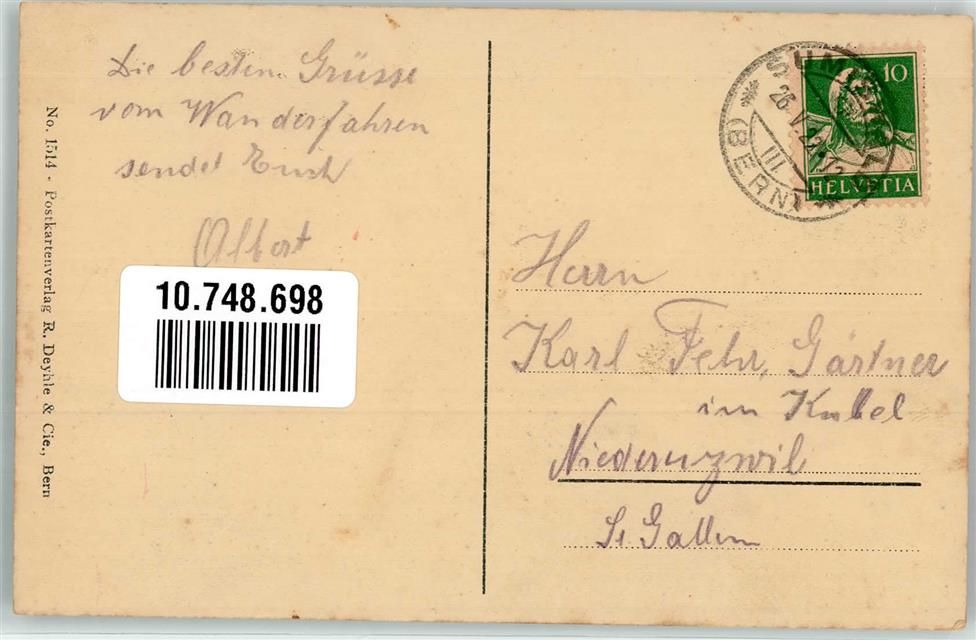 Die besten Grüsse
vom Wanderfahren
sendet Euch
Albert
10.748.698
No. 1514 - Postkartenverlag R. Deyhle & Cie., Bern
10
HELVETIA
26. V.
III
(BERN)
Herrn
Karl Fehr, Gärtner
im Kobel
Niederuzwil
St Gallen